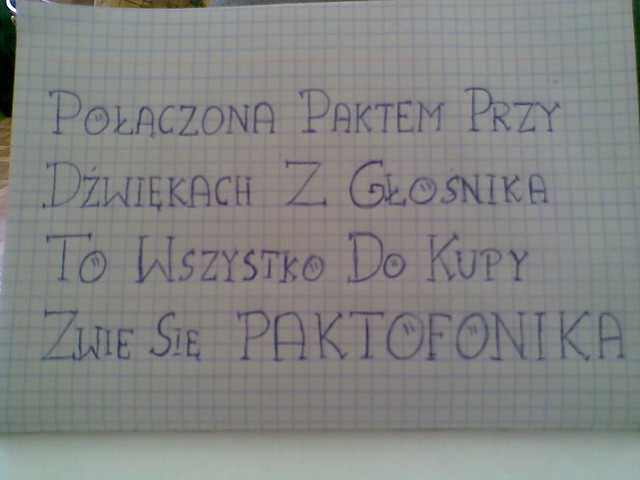 Połączona Paktem Przy
Dźwiękach Z Głośnika
To Wszystko Do Kupy
Zwie Się PAKTOFONIKA